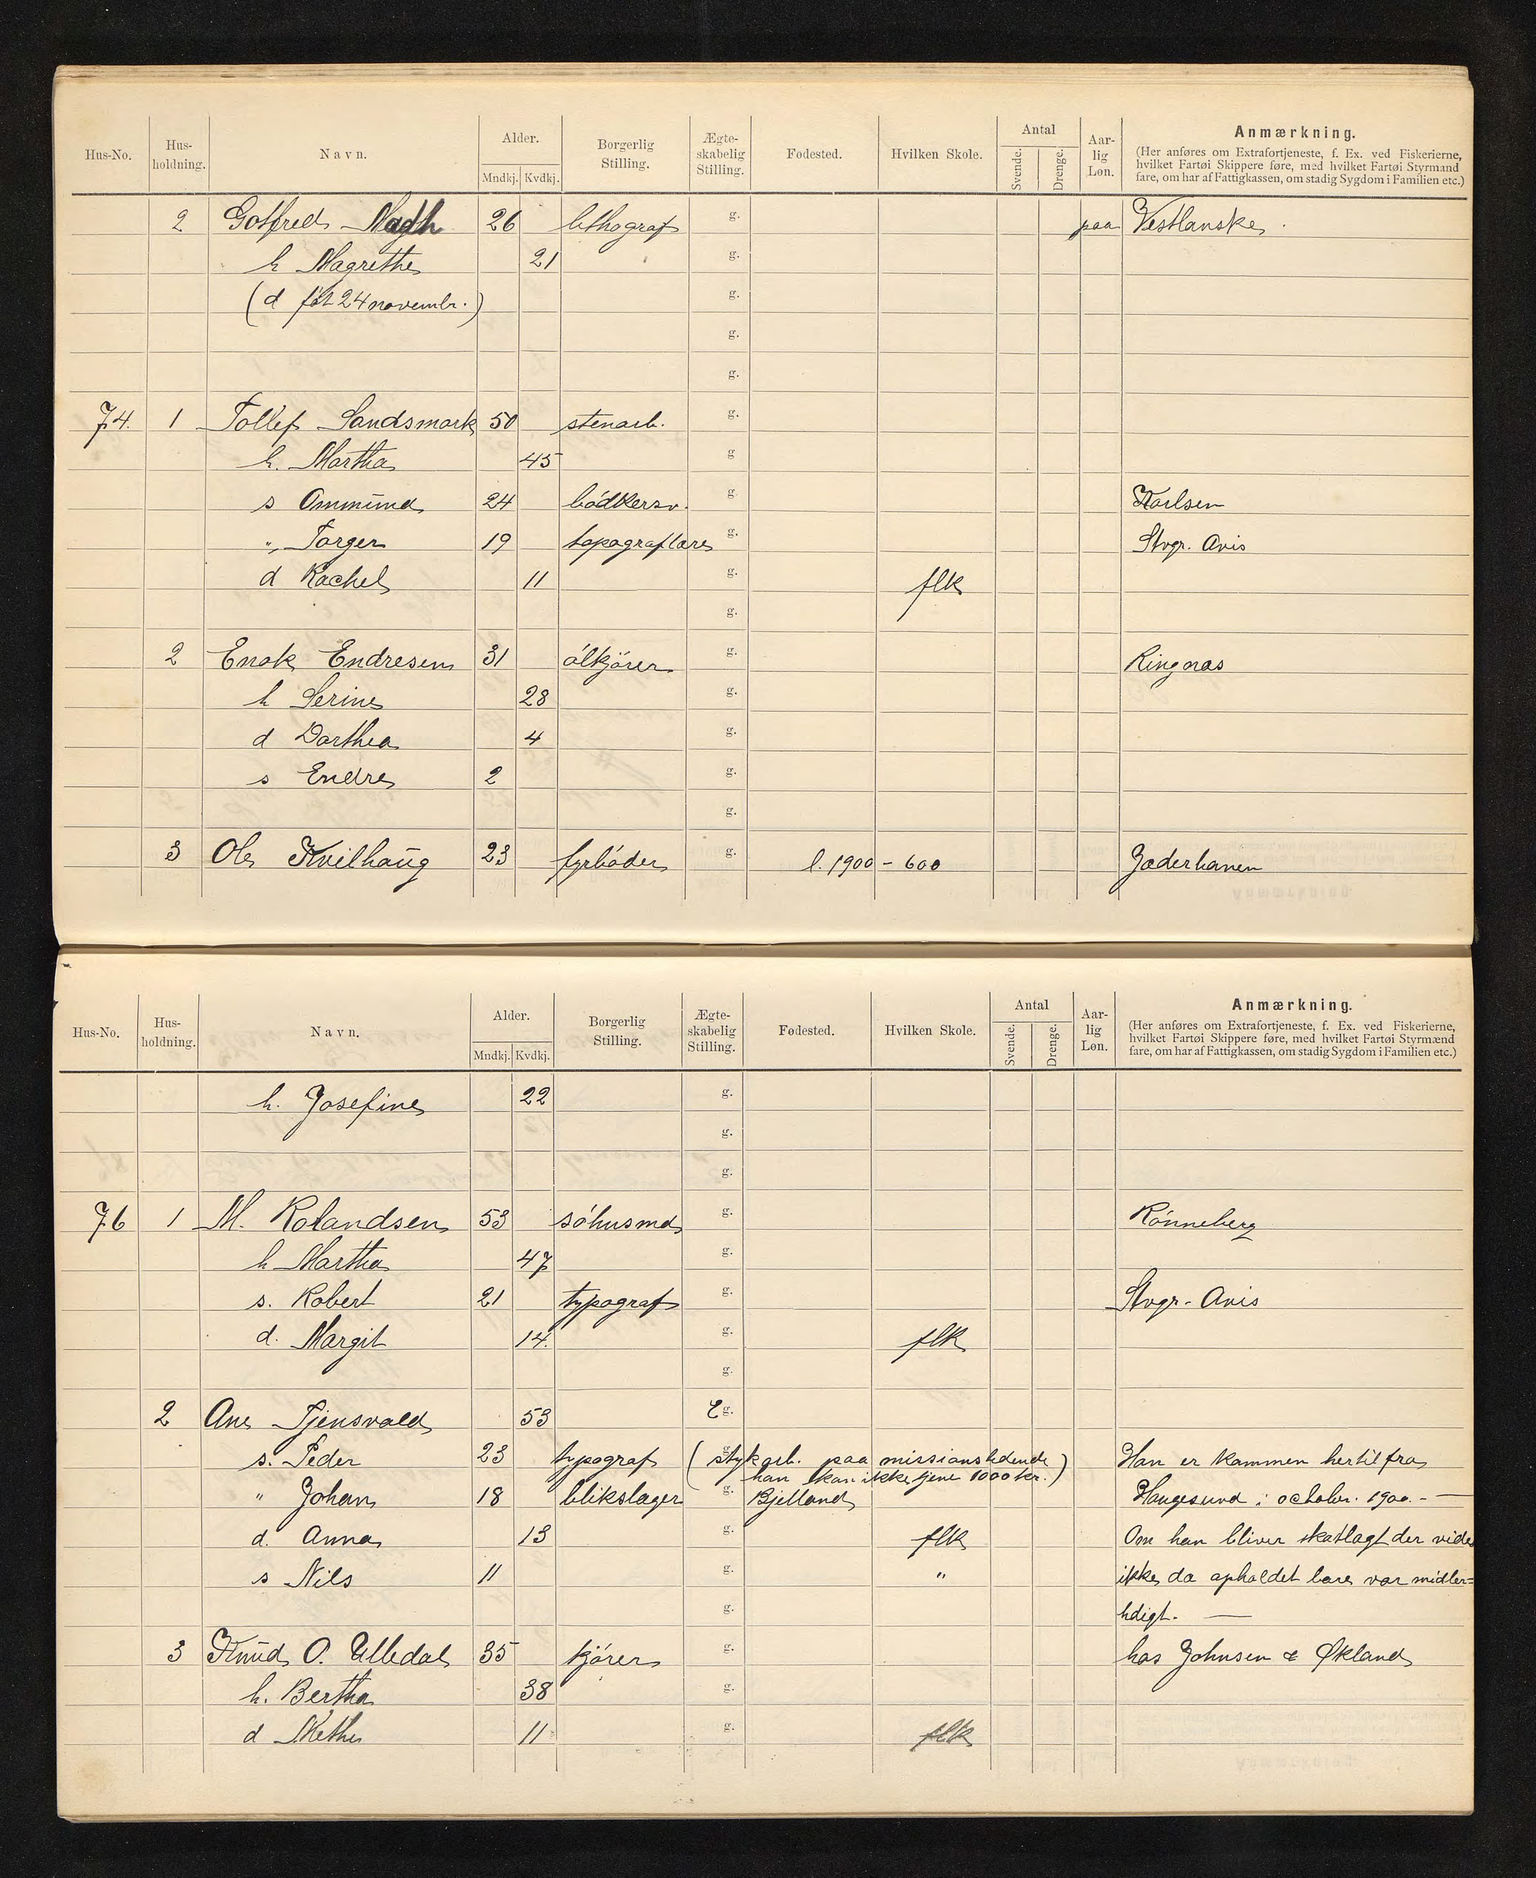 Hus-No. Hus-holdning. Navn. Alder. Mndkj. Kvdkj. Borgerlig Stilling. Ægte-skabelig Stilling. Fødested. Hvilken Skole. Antal Svende. Drenge. Aar-lig Løn. Anmærkning.
(Her anføres om Extrafortjeneste, f. Ex. ved Fiskerierne,
hvilket Fartøi Skippere føre, med hvilket Fartøi Styrmænd
fare, om har af Fattigkassen, om stadig Sygdom i Familien etc.)
2 Gotfred Nadh 26 lithograf g. paa Vestlanske
h Magrethe 21 g.
(d føt 24 novembr.) g.
g.
g.
74. 1 Tollef Sandsmark 50 stenarb. g.
h. Martha 45 g
s Ommund 24 bødkersv. g. Karlsen
" Torger 19 topograflære g. Stvgr. Avis
d Rachel 11 g. flk
g.
2 Enok Endresen 31 ølkjører g. Ringnæs
h Serine 28 g.
d Dorthea 4 g.
s Endre 2 g.
g.
3 Ole Kvilhaug 23 fyrbøder g. l. 1900 - 600 Jæderhanen
Hus-No. Hus-holdning. Navn. Alder. Mndkj. Kvdkj. Borgerlig Stilling. Ægte-skabelig Stilling. Fødested. Hvilken Skole. Antal Svende. Drenge. Aar-lig Løn. Anmærkning.
(Her anføres om Extrafortjeneste, f. Ex. ved Fiskerierne,
hvilket Fartøi Skippere føre, med hvilket Fartøi Styrmænd
fare, om har af Fattigkassen, om stadig Sygdom i Familien etc.)
h. Josefine 22 g.
g.
g.
76 1 M. Rolandsen 53 søhusmd g. Rønneberg
h Martha 47 g.
s. Robert 21 typograf g. Stvgr- Avis
d. Margit 14. g. flk
g.
2 Ane Tjensvold 53 E g.
s. Peder 23 typograf (stykarb. paa missionstidende Han er kommen hertil fra
han kan ikke tjene 1000 kr.)
" Johan 18 blikslager g. Bjelland Haugesund i octobr. 1900. -
d. Anna 13 g. flk Om han bliver skatlagt der vides
s Nils 11 g. " ikke da opholdet bare var midler=
g. tidigt.
3 Knud O. Ulledal 35 kjører g. hos Johnsen & Økland
h. Bertha 38 g.
d Methe 11 g. flk